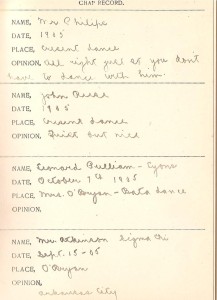 CHAP RECORD.
NAME, Mr Philips
DATE, 1905
PLACE, Crescent dance
OPINION, All right just as you don't
have to dance with him.
NAME, John
DATE, 1905
PLACE, Crescent dance
OPINION, Quiet but nice
NAME, Leonard Pulliam - Lyons
DATE, October 7th 1905
PLACE, Mrs. O'Bryan - Bata dance
OPINION,
NAME, Mr Atkinson Sigma Chi
DATE, Sept. 15 - 05
PLACE, O'Bryan
OPINION,
Arkansas City